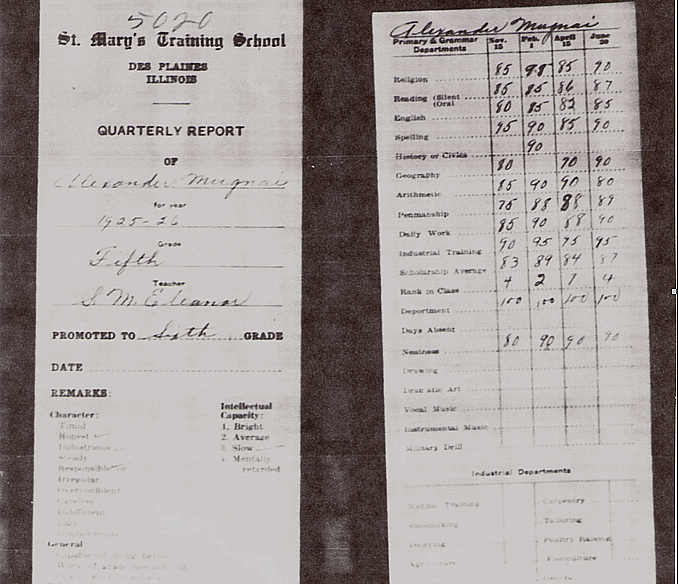 5020
St. Mary's Training School
DES PLAINES
ILLINOIS
QUARTERLY REPORT
OF
Alexander Mugnai
for year
1925-26
Grade
Fifth
Teacher
S. M. Eleanor
PROMOTED TO Sixth GRADE
DATE
REMARKS:
Character:
Timid
Honest
Industrious
Steady
Responsible
Irregular
Overconfident
Careless
Indifferent
Lazy
General
Intellectual
Capacity:
1. Bright
2. Average
3. Slow
4. Mentally
retarded
Alexander Mugnai
Primary & Grammar
Departments
Nov. 15 Feb. 1 April 15 June 20
Religion 85 98 85 90
Reading (Silent 85 85 86 87
(Oral 80 85 82 85
English
Spelling 95 90 85 90
History or Civics 90
Geography 80 70 90
Arithmetic 85 90 90 80
Penmanship 75 88 88 89
Daily Work 85 90 88 90
Industrial Training 90 95 95 95
Scholarship Average 83 89 84 87
Rank in Class 4 2 7 4
Department 100 100 100 100
Days Absent
Neatness 80 90 90 90
Drawing
Dramatic Art
Vocal Music
Instrumental Music
Military Drill
Industrial Departments
Manual Training Carpentry
Shoemaking Tailoring
Dairying Poultry Raising
Agriculture Floriculture